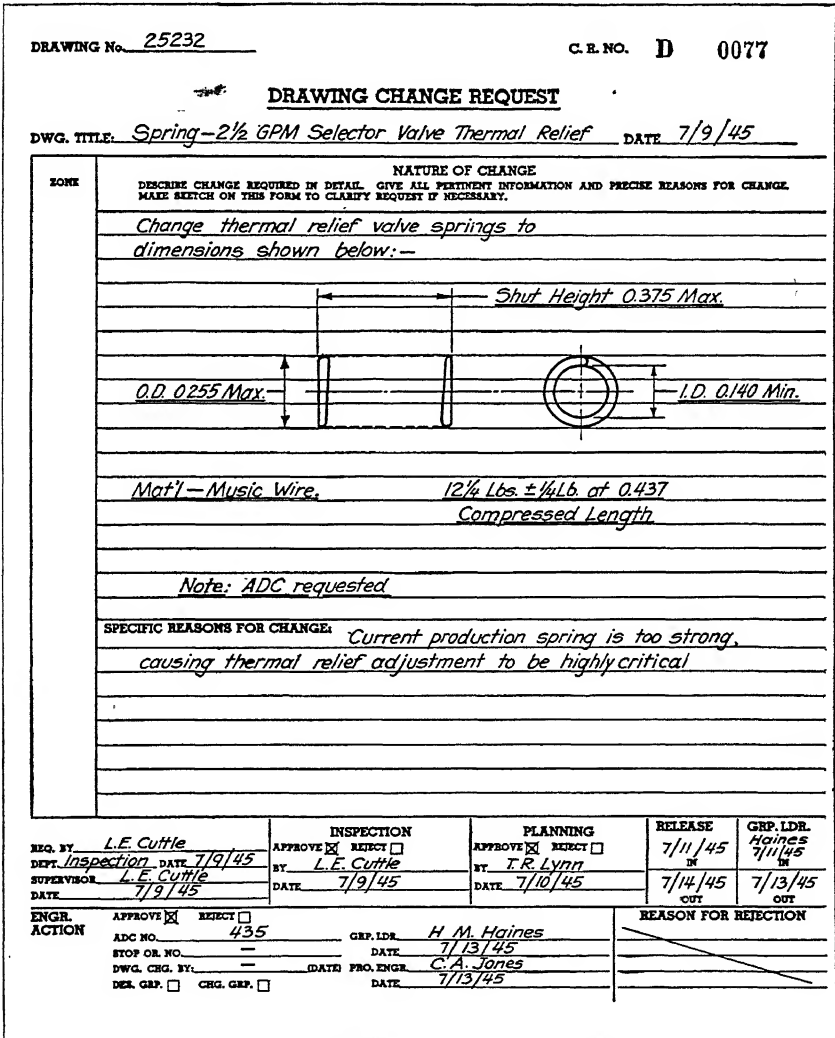 DRAWING No. 25232 C. R. NO. D 0077
DRAWING CHANGE REQUEST
DWG. TITLE: Spring-2½ GPM Selector Valve Thermal Relief DATE 7/9/45
ZONE
NATURE OF CHANGE
DESCRIBE CHANGE REQUIRED IN DETAIL. GIVE ALL PERTINENT INFORMATION AND PRECISE REASONS FOR CHANGE.
MAKE SKETCH ON THIS FORM TO CLARIFY REQUEST IF NECESSARY.
Change thermal relief valve springs to
dimensions shown below:—
Shut Height 0.375 Max.
O.D. 0255 Max.
I.D. 0.140 Min.
Mat'l—Music Wire. 12¼ Lbs. ± ¼ Lb. at 0.437
Compressed Length
Note: ADC requested
SPECIFIC REASONS FOR CHANGE: Current production spring is too strong,
causing thermal relief adjustment to be highly critical
REQ. BY L.E. Cuttle
DEPT. Inspection DATE 7/9/45
SUPERVISOR L.E. Cuttle
DATE 7/9/45
INSPECTION
APPROVE ☒ REJECT ☐
BY L.E. Cuttle
DATE 7/9/45
PLANNING
APPROVE ☒ REJECT ☐
BY T.R. Lynn
DATE 7/10/45
RELEASE
7/11/45
IN
7/14/45
OUT
GRP. LDR.
Haines
7/11/45
IN
7/13/45
OUT
ENGR.
ACTION
APPROVE ☒ REJECT ☐
ADC NO. 435
STOP OR. NO. —
DWG. CHG. BY: — (DATE)
DES. GRP. ☐ CHG. GRP. ☐
GRP. LDR. H M. Haines
DATE 7/13/45
PRO. ENGR. C.A. Jones
DATE 7/13/45
REASON FOR REJECTION